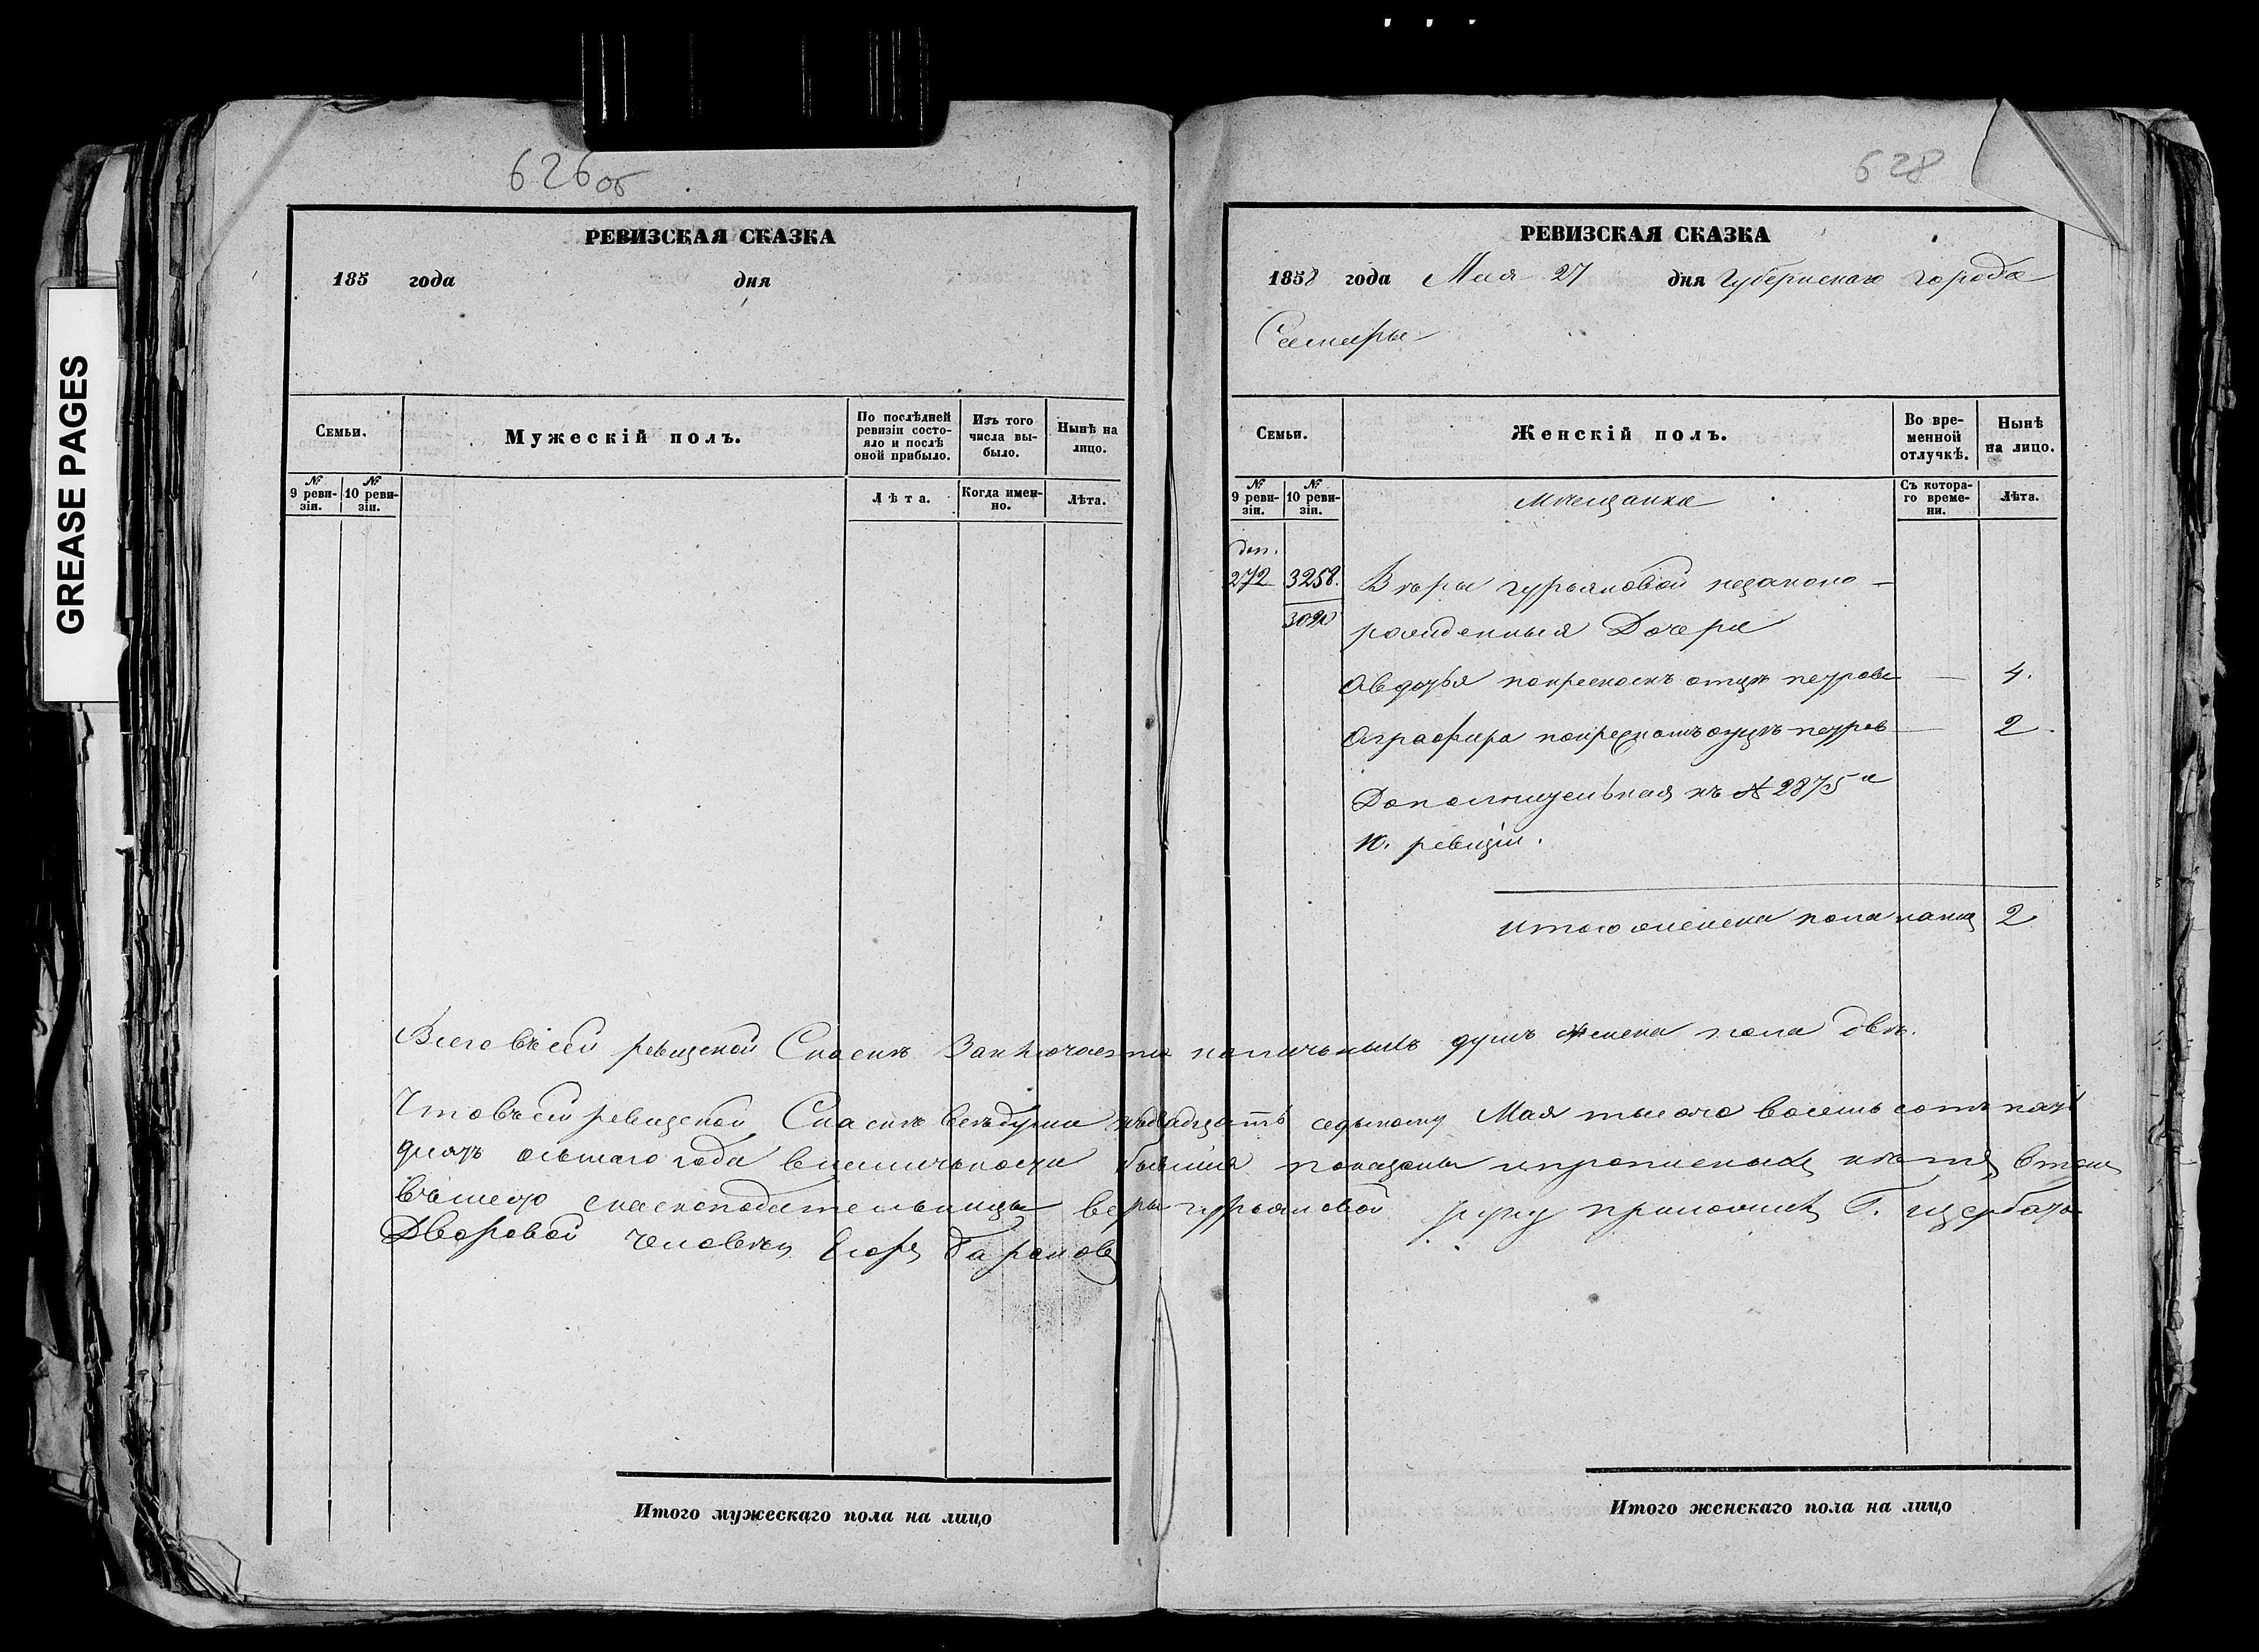 GREASE PAGES
626 об
РЕВИЗСКАЯ СКАЗКА
185 года дня
Семьи.
Мужескій полъ.
По послѣдней ревизіи состояло и послѣ оной прибыло.
Изъ того числа выбыло.
Нынѣ на лицо.
№ 9 ревизіи.
№ 10 ревизіи.
Лѣта.
Когда именно.
Лѣта.
Итого мужескаго пола на лицо
628
РЕВИЗСКАЯ СКАЗКА
1858 года Мая 27 дня Губернскаго города
Самары
Семьи.
Женскій полъ.
Во временной отлучкѣ.
Нынѣ на лицо.
№ 9 ревизіи.
№ 10 ревизіи.
Мѣщанка
Съ котораго времени.
Лѣта.
доп.
272 3258. Вѣры Гурьяновой незаконо-
рожденныя Дочери
Авдотья покресномъ отцѣ петрова — 4.
Аграфира покресномъ отцѣ петров — 2.
Дополнительная къ № 2875 й
10. ревизіи.
Итого женска пола налиц 2
Всего въсей ревизской Сказкѣ Заключается наличныхъ душъ женска пола двѣ.
Чтовъсей ревизской Сказкѣ всѣдуши къдвадцать седьмому Мая тысяча восемь сотъ пять
десятъ осьмаго года вналичьности бывшия показаны инрописныхъ нѣтъ втом
вместо сказкоподательницы веры гурьяновой руку приложилъ Г. щербатов
Дворовой человекъ Егоръ
Итого женскаго пола на лицо